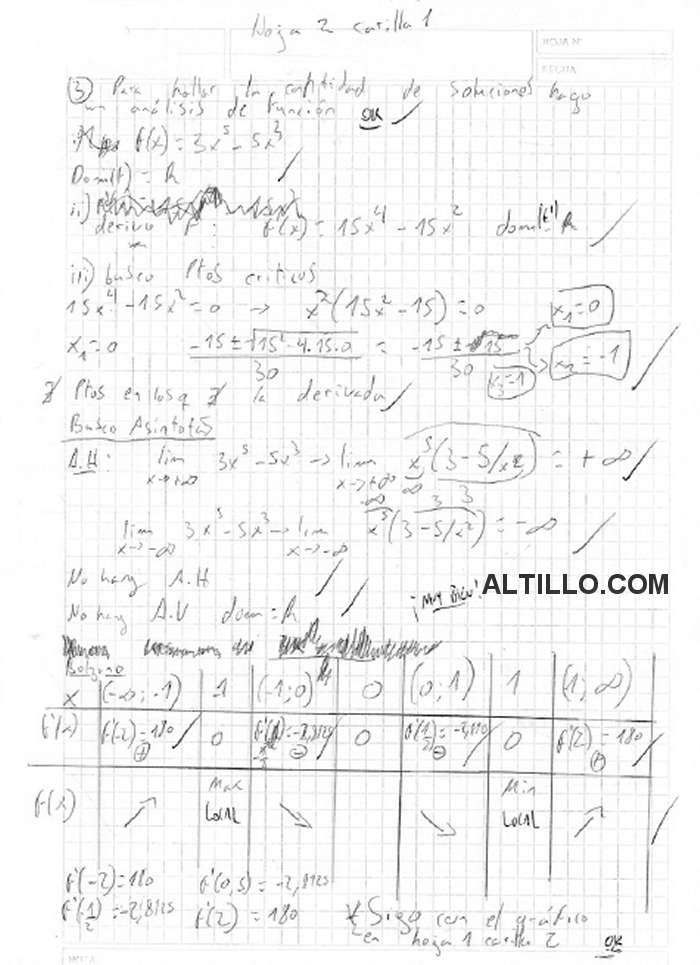 Hoja 2 carilla 1
③ Para hallar la cantidad de soluciones hago
un análisis de función OK ✓
f(x) = 3x⁵ - 5x³
Dom(f) = R ✓
ii)
derivo f : f'(x) = 15x⁴ - 15x² dom(f') R ✓
iii) busco Ptos criticos
15x⁴ - 15x² = 0 → x²(15x² - 15) = 0 x₁=0
x₁=0 -15 ± √15² - 4.15.0 / 30 = -15 ± 15 / 30 x₃=1 x₂ = -1 ✓
∄ Ptos en los q ∄ la derivada ✓
Busco Asintotas
A.H: lim x→+∞ 3x⁵ - 5x³ → lim x→+∞ x⁵(3 - 5/x²) = +∞ ✓
lim x→-∞ 3x⁵ - 5x³ → lim x→-∞ x⁵(3 - 5/x²) = -∞ ✓
No hay A.H ✓
No hay A.V dom = R ✓ ¡Muy bien!
ALTILLO.COM
Bolzano
x (-∞; -1) 1 (-1; 0) 0 (0; 1) 1 (1; ∞)
f'(x) f'(-2) = 180 ⊕ 0 = -2,8125 ⊖ 0 f'(1/2) = ⊖ 0 f'(2) = 180 ⊕ ✓
f(x) ↗ Max LOCAL ↘ ↘ Min LOCAL ↗ ✓
f'(-2) = 180 f'(0,5) = -2,8125
f'(-1/2) = -2,8125 f'(2) = 180 * Sigo con el gráfico
en hoja 1 carilla 2 OK